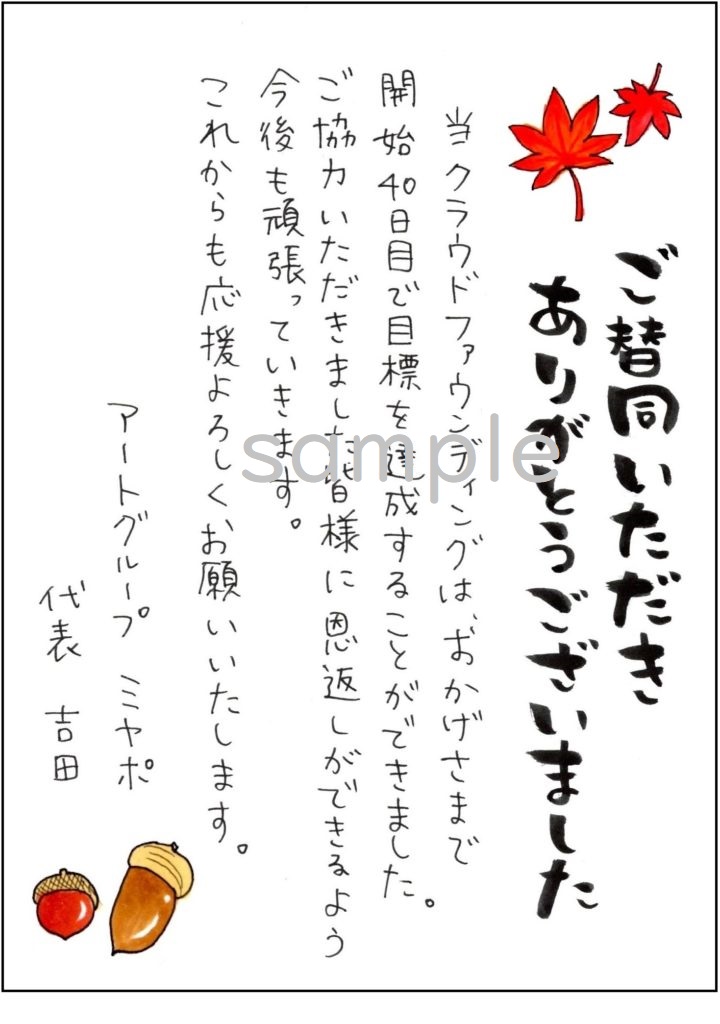 ご賛同いただき
ありがとうございました
当クラウドファウンディングは、おかげさまで
開始40日目で目標を達成することができました。
ご協力いただきました皆様に恩返しができるよう
今後も頑張っていきます。
これからも応援よろしくお願いいたします。
アートグループ ミヤポ
代表 吉田
sample